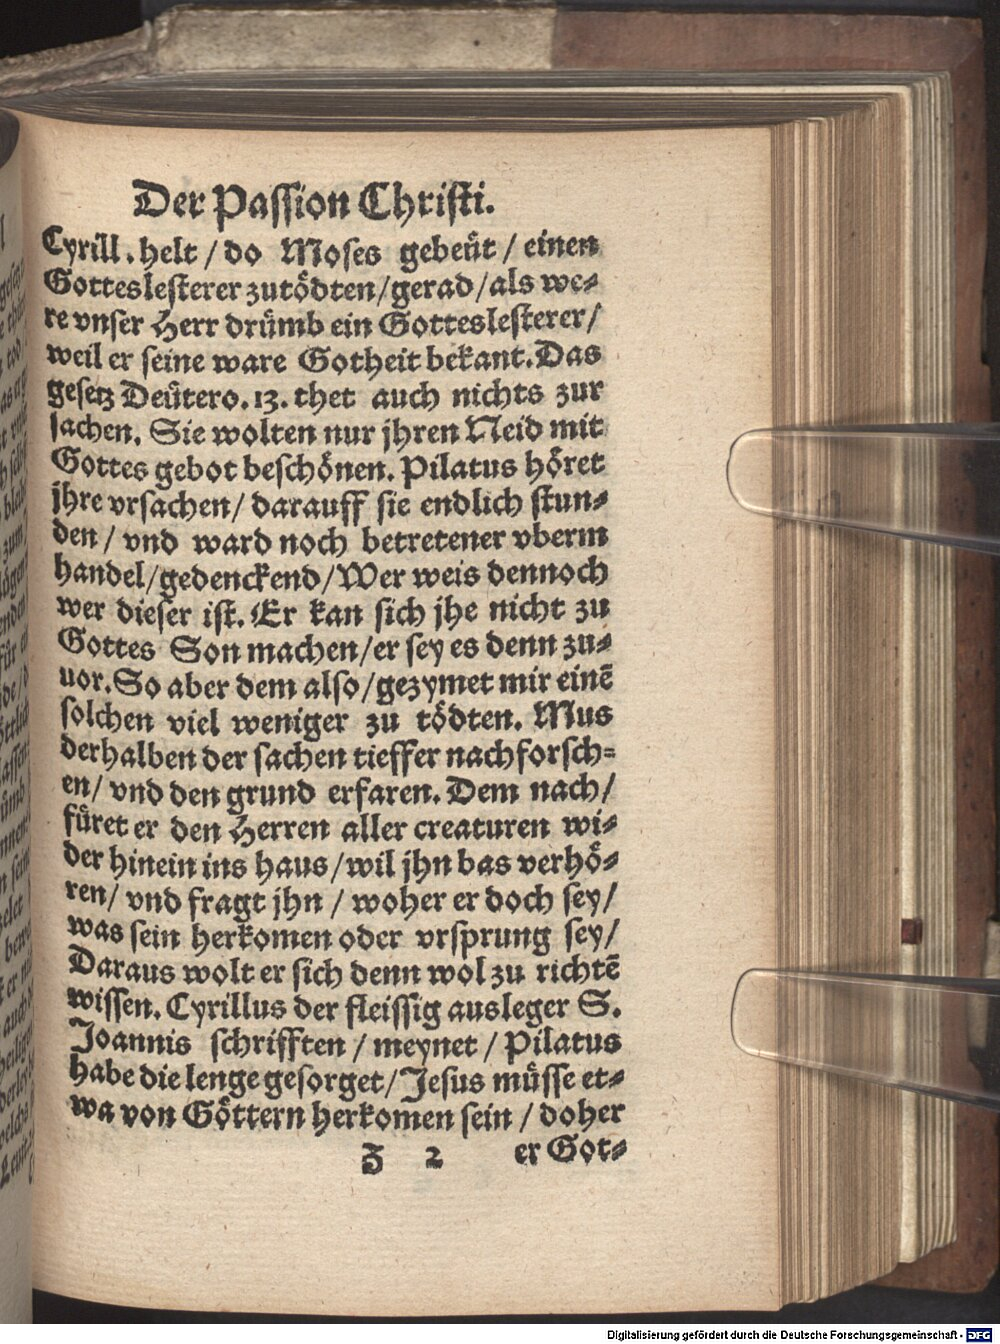 Der Passion Christi.
Cyrill. helt / do Moses gebeüt / einen
Gotteslesterer zutödten/gerad/als we-
re vnser Herr drümb ein Gotteslesterer/
weil er seine ware Gotheit bekant. Das
gesetz Deütero. 13. thet auch nichts zur
sachen. Sie wolten nur jhren Neid mit
Gottes gebot beschönen. Pilatus höret
jhre vrsachen/ darauff sie endlich stun-
den / vnd ward noch betretener vberm
handel/gedenckend/Wer weis dennoch
wer dieser ist. Er kan sich jhe nicht zu
Gottes Son machen/er sey es denn zu-
uor. So aber dem also/gezymet mir einē
solchen viel weniger zu tödten. Mus
derhalben der sachen tieffer nachforsch=
en/ vnd den grund erfaren. Dem nach/
füret er den Herren aller creaturen wi-
der hinein ins haus/wil jhn bas verhö-
ren/ vnd fragt jhn / woher er doch sey/
was sein herkomen oder vrsprung sey/
Daraus wolt er sich denn wol zu richtē
wissen. Cyrillus der fleissig ausleger S.
Joannis schrifften / meynet / Pilatus
habe die lenge gesorget/Jesus müsse et-
wa von Göttern herkomen sein / doher
Z 2 er Got-
Digitalisierung gefördert durch die Deutsche Forschungsgemeinschaft - DFG